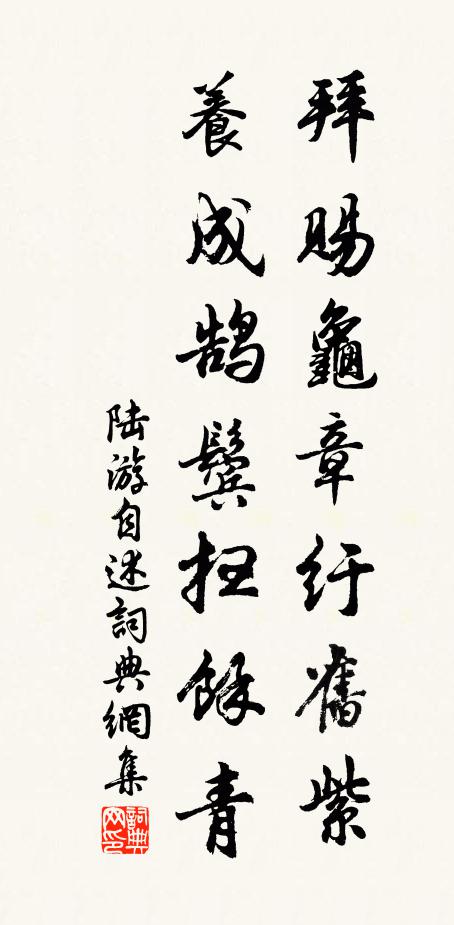 拜賜龜章紆舊紫
養成鵠鬢扭餘青
陆游自述詞典網集
詞典网印